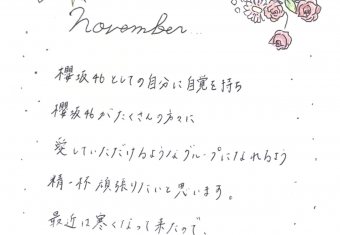 November...
櫻坂46としての自分に自覚を持ち
櫻坂46がたくさんの方々に
愛していただけるようなグループになれるよう
精一杯頑張りたいと思います。
最近は寒くなって来たので、